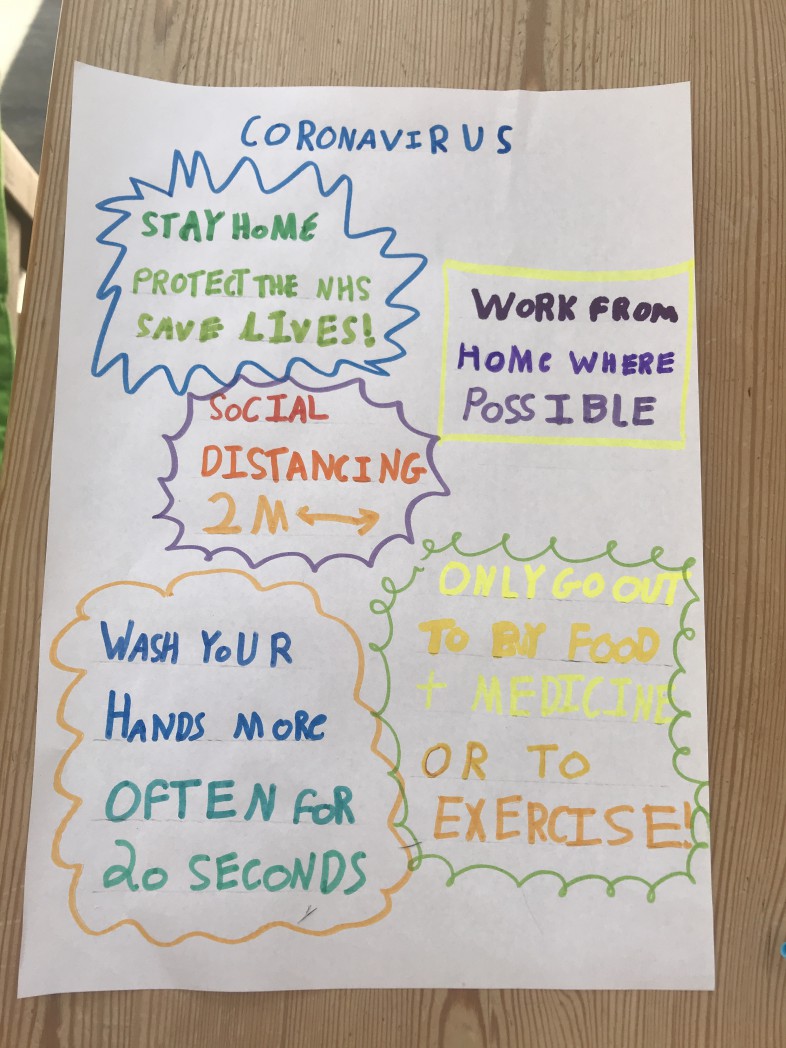 CORONAVIRUS
STAY HOME
PROTECT THE NHS
SAVE LIVES!
WORK FROM
HOME WHERE
POSSIBLE
SOCIAL
DISTANCING
2M ↔
ONLY GO OUT
TO BY FOOD
+ MEDICINE
OR TO
EXERCISE!
WASH YOUR
HANDS MORE
OFTEN FOR
20 SECONDS